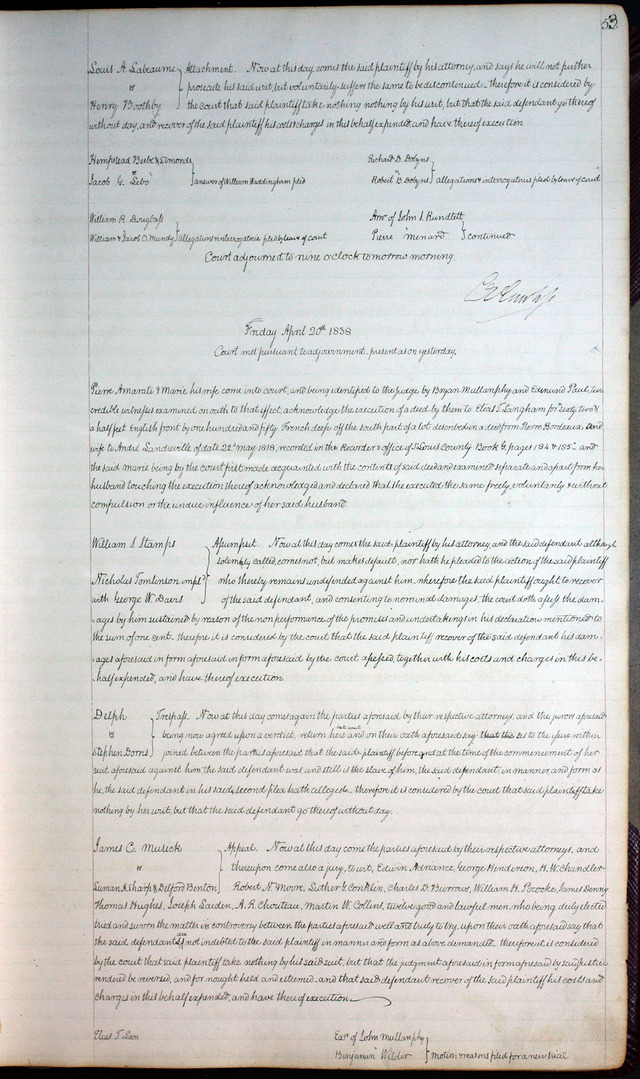 53
Louis A. Labeaume } Attachment. Now at this day, comes the said plaintiff by his attorney, and says he will not further
vs prosecute his said writ, but voluntarily suffers the same to be discontinued – therefore it is considered by
Henry Boothby the court that said plaintiff take nothing nothing by his writ, but that the said defendant go thereof
without day, and recover of the said plaintiff his costs & charges in this behalf expended, and have thereof execution
Hempstead Beebe & Simonds
vs
Jacob G. Lebo } answer of William Waddingham filed
Richard D. Dobyns
vs
Robert B. Dobyns } allegations & interrogatories filed by leave of court
William R. Douglass
William & Jacob O. Mundy } allegations & interrogatories filed by leave of court
Amr of John S. Rundlett
vs
Pierre Menard } continued
Court adjourned to nine o'clock tomorrow morning
Friday April 20th 1838
Court met pursuant to adjournment, present as on yesterday.
Pierre Amarati & Marie his wife come into court, and being identified to the judge by Bryan Mullanphy and Edmund Paul, two
credible witnesses examined on oath to that effect, acknowledge the execution of a deed by them to Elias T. Langham for sixty two &
a half feet English front by one hundred and fifty French deep off the south part of a lot described in a deed from Pierre Bordeaux and
wife to André Landreville of date 22d may 1818, recorded in the Recorder's office of St Louis County Book G pages 184 & 185 – and
the said marie being by the court first made acquainted with the contents of said deed and examined separate and apart from her
husband touching the execution thereof acknowledged and declared that she executed the same freely, voluntarily & without
compulsion or the undue influence of her said husband.
William S Stamps } Assumpsit. Now at this day comes the said plaintiff by his attorney, and the said defendant although
solemnly called, comes not, but makes default, nor hath he pleaded to the action of the said plaintiff
Nicholas Tomlinson impld who thereby remains undefended against him, wherefore the said plaintiff ought to recover
with George W. Davis of the said defendant, and consenting to nominal damages, the court doth assess the dam-
ages by him sustained by reason of the non performance of the promises and undertakings in his declaration mentioned to
the sum of one cent. therefore it is considered by the court that the said plaintiff recover of the said defendant his dam-
ages aforesaid in form aforesaid in form aforesaid by the court assessed, together with his costs and charges in this be-
half expended, and have thereof execution.
Delph } Trespass. Now at this day comes again the parties aforesaid by their respective attorneys, and the jurors aforesaid
vs being now agreed upon a verdict, return here into court and on their oath aforesaid say that the as to the issue within
Stephen Dorris joined between the parties aforesaid that the said plaintiff before and at the time of the commencement of her
suit aforesaid against him the said defendant was and still is the slave of him, the said defendant, in manner and form as
he, the said defendant in his said second plea hath alleged – therefore it is considered by the court that said plaintiff take
nothing by her writ, but that the said defendant go thereof without day.
James C. Musick } Appeal. Now at this day come the parties aforesaid by their respective attorneys, and
vs thereupon come also a jury, to wit, Edwin Adnance, George Henderson, H. W. Chandler
Luman A. Sharp & Delford Benton Robert N. Moore, Luther G. Conklin, Charles D. Burrows, William H. Pococke, James Denny
Thomas Hughes, Joseph Laiden, A. R. Chouteau, Martin W. Collins, twelve good and lawful men, who being duly elected
tried and sworn the matter in controversy between the parties aforesaid well and truly to try, upon their oath aforesaid say that
the said defendants are not indebted to the said plaintiff in manner and form as above demanded – therefore it is considered
by the court that said plaintiff take nothing by his said suit, but that the judgment aforesaid in form aforesaid by said justice
rendered be reversed, and for nought held and esteemed – and that said defendant recover of the said plaintiff his costs and
charges in this behalf expended, and have thereof execution
Elias T. Lan
Exr of John Mullanphy
vs
Benjamin Wilder } motion & reasons filed for a new trial